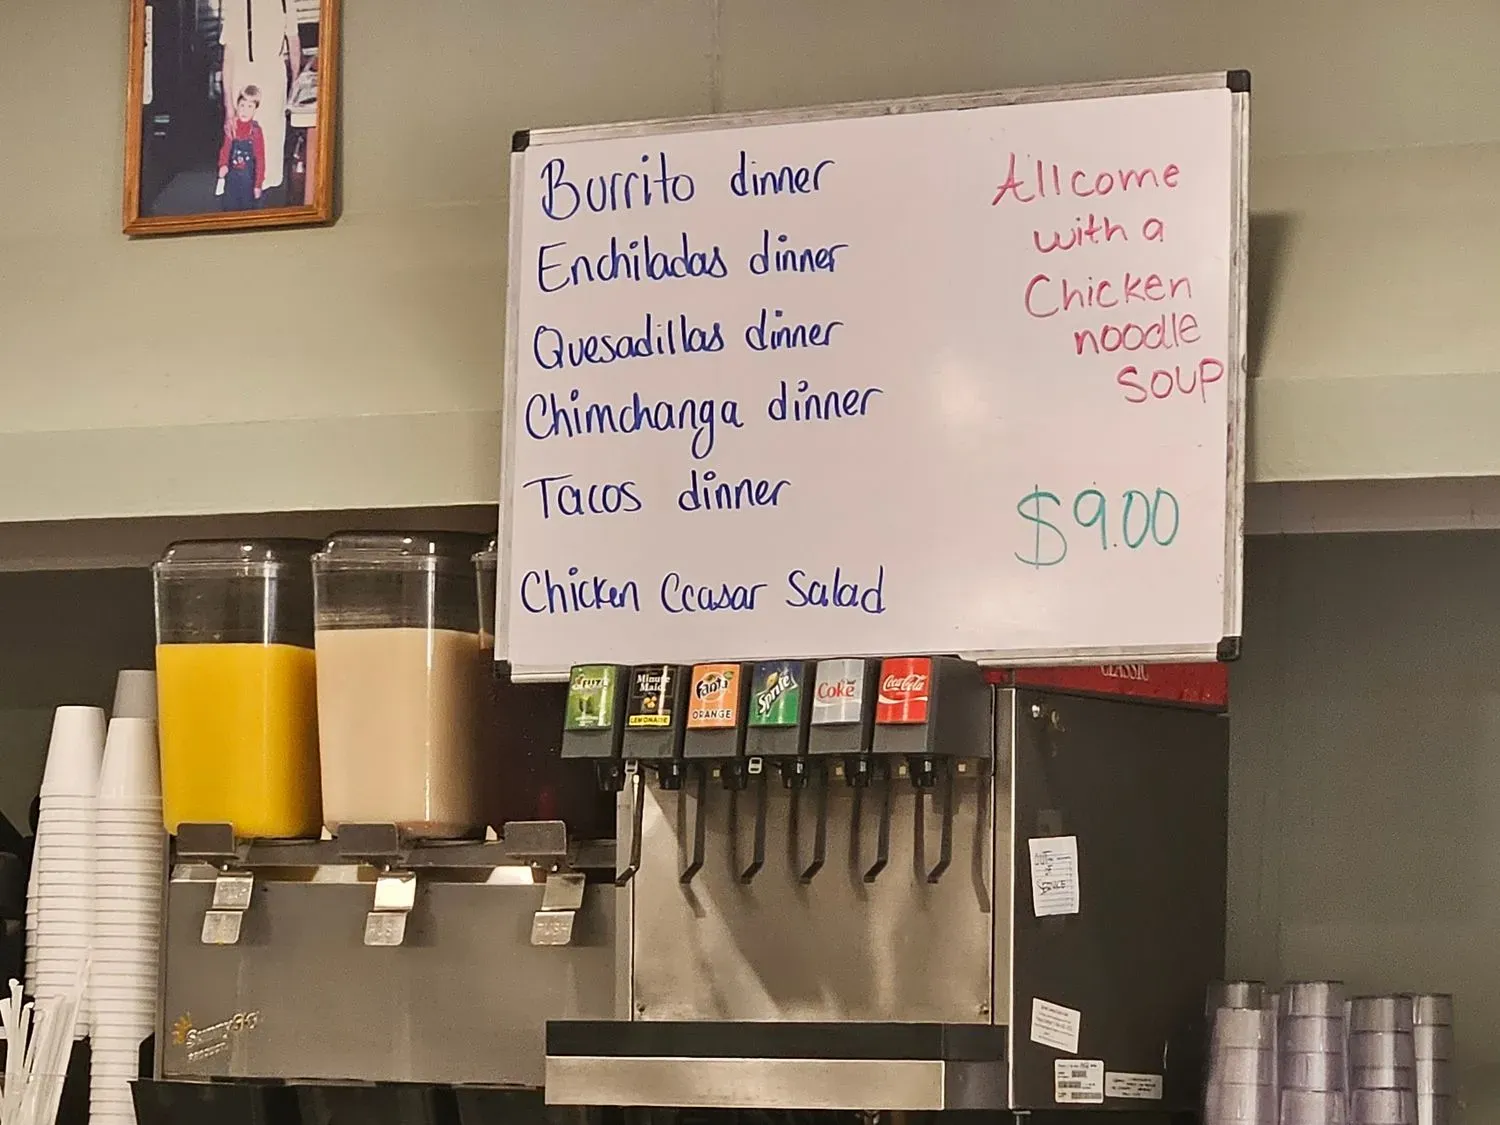 Burrito dinner
Enchiladas dinner
Quesadillas dinner
Chimchanga dinner
Tacos dinner
Chicken Ccasar Salad
All come
with a
Chicken
noodle
soup
$9.00
Minute
Maid
LEMONADE
Fanta
ORANGE
Sprite
Coke
Coca-Cola
CLASSIC
PUSH
PUSH